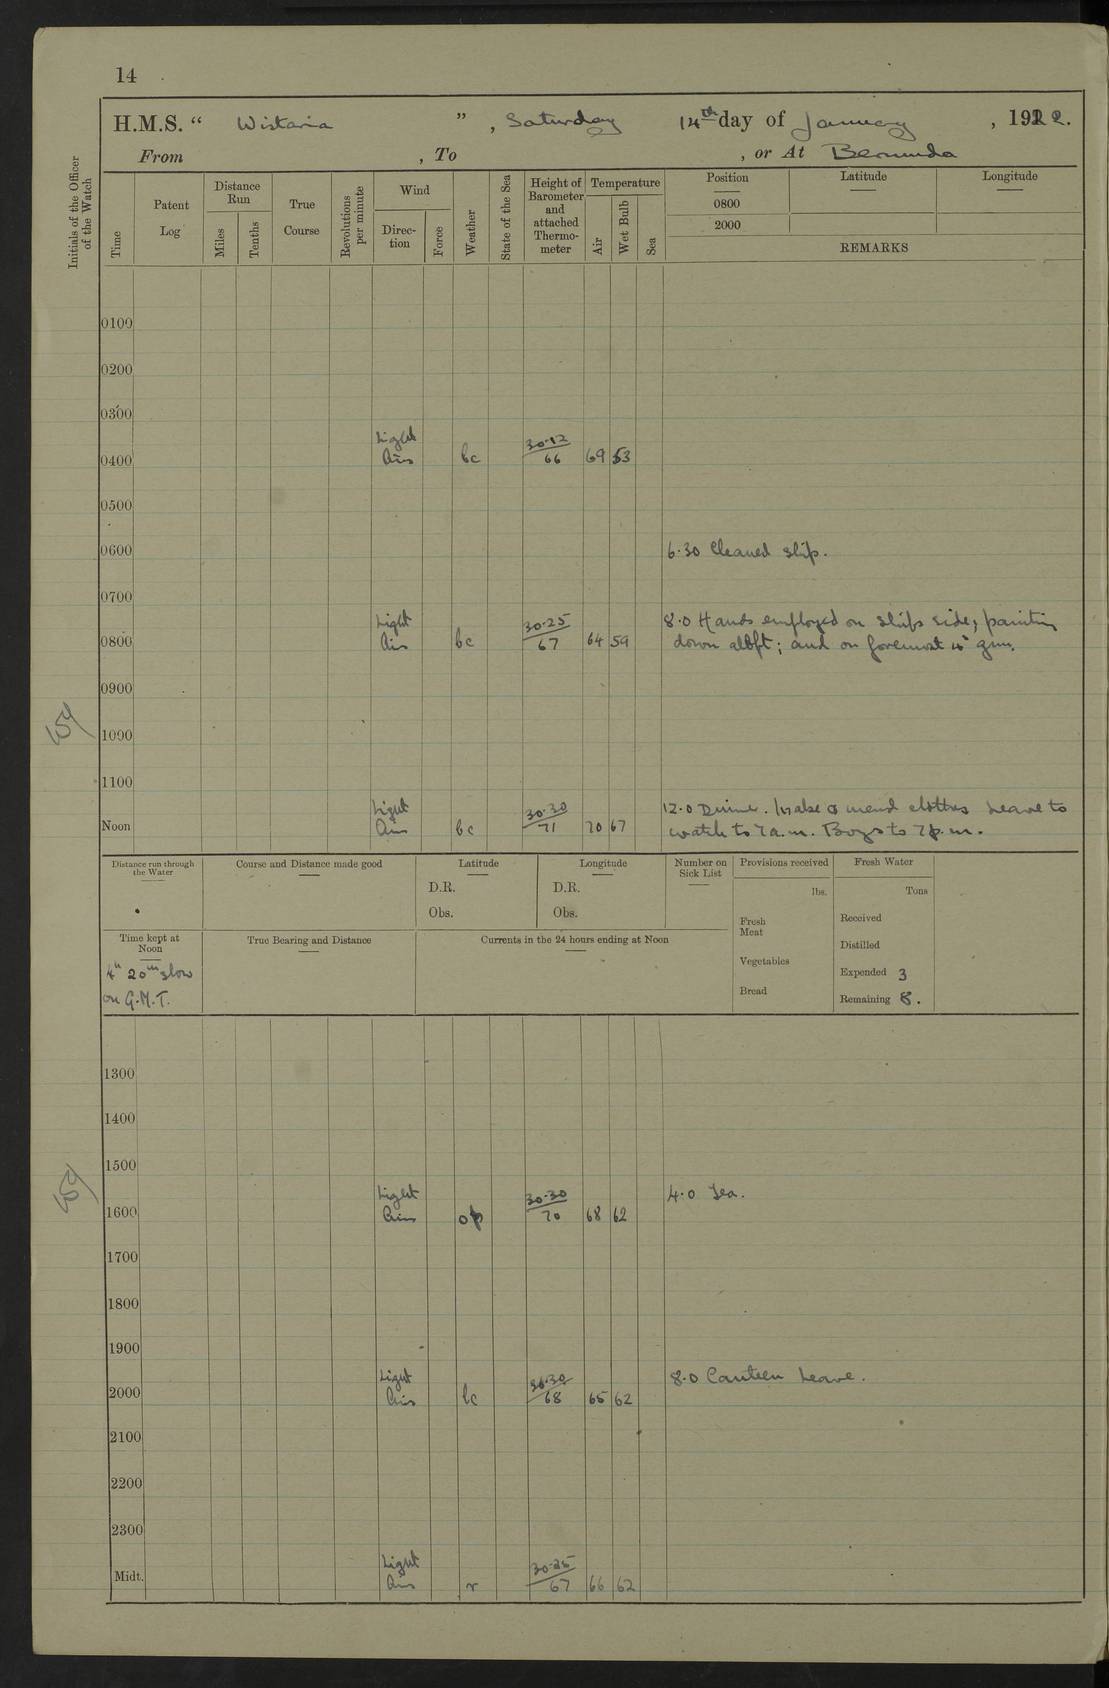 14
H.M.S. " Wistaria ", Saturday 14th day of January, 1922.
From , To , or At Bermuda
Initials of the Officer of the Watch
Time
Patent Log
Distance Run
Miles
Tenths
True Course
Revolutions per minute
Wind
Direc-tion
Force
Weather
State of the Sea
Height of Barometer and attached Thermo-meter
Temperature
Air
Wet Bulb
Sea
Position
0800
2000
Latitude
Longitude
REMARKS
0100
0200
0300
Light
0400 Airs bc 30.12/66 69 53
0500
0600 6.30 Cleaned ship.
0700
Light 8.0 Hands employed on ships side; painting
0800 Airs bc 30.25/67 64 59 down aloft; and on foremost 4" gun.
0900
1000
1100
Light 12.0 Dinner. Make & mend clothes Leave to
Noon Airs bc 30.30/71 70 67 watch to 7 a.m. Boys to 7 p.m.
Distance run through the Water
Course and Distance made good
Latitude
D.R.
Obs.
Longitude
D.R.
Obs.
Number on Sick List
Provisions received
lbs.
Fresh Meat
Vegetables
Bread
Fresh Water
Tons
Received
Distilled
Expended 3
Remaining 8.
Time kept at Noon
4h 20m slow
on G.M.T.
True Bearing and Distance
Currents in the 24 hours ending at Noon
1300
1400
1500
Light 4.0 Tea.
1600 Airs op 30.30/70 68 62
1700
1800
1900
Light 8.0 Canteen Leave.
2000 Airs bc 30.30/68 65 62
2100
2200
2300
Light
Midt. Airs r 30.25/67 66 62